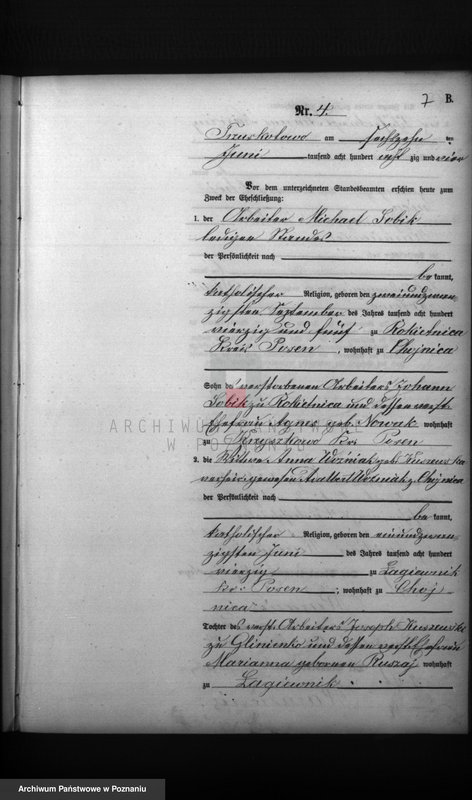 7 B.
Nr. 4.
Truskotowo am sechszehn ten
Juni tausend acht hundert acht zig und vier
Vor dem unterzeichneten Standesbeamten erschien heute zum
Zweck der Eheschließung:
1. der Arbeiter Michael Sobik
ledigen Standes
der Persönlichkeit nach
be kannt,
katholischer Religion, geboren den zweiundzwan
zigsten September des Jahres tausend acht hundert
vierzig und fünf zu Rokietnica
Kreis Posen, wohnhaft zu Chojnica
Sohn des verstorbenen Arbeiters Johann
Sobik zu Rokietnica und dessen verst.
Ehefrau Agnes geb. Nowak wohnhaft
zu Krzyszkowo Kr. Posen
2. die Wittwe Anna Woźniak geb.
gewesen Woźniak z. Chojnica
der Persönlichkeit nach
be kannt,
katholischer Religion, geboren den einundzwan
zigsten Juni des Jahres tausend acht hundert
vierzig zu Lagiewnik
Kr. Posen, wohnhaft zu Choj
nica
Tochter des verst. Arbeiters Joseph
zu Glinienko und dessen verst. Ehefrau
Marianna geborenen Ruszaj wohnhaft
zu Lagiewnik
ARCHIWUM PAŃSTWOWE
W POZNANIU
Archiwum Państwowe w Poznaniu